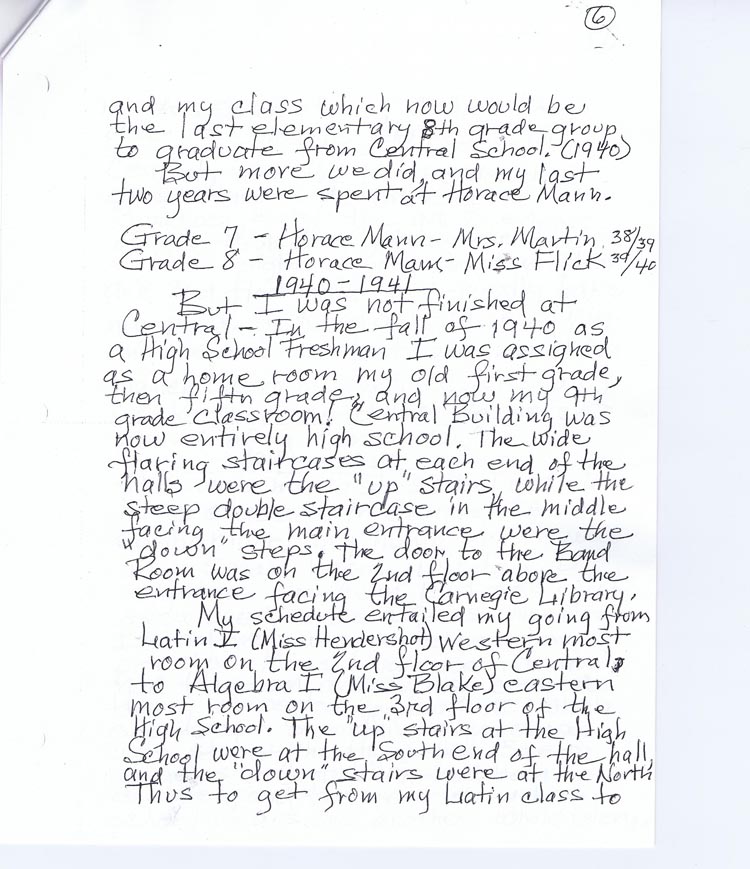 6
and my class which now would be
the last elementary 8th grade group
to graduate from Central School. (1940)
But more we did, and my last
two years were spent at Horace Mann.
Grade 7 - Horace Mann - Mrs. Martin 38/39
Grade 8 - Horace Mann - Miss Flick 39/40
1940-1941
But I was not finished at
Central - In the fall of 1940 as
a High School Freshman I was assigned
as a home room my old first grade,
then fifth grade, and now my 9th
grade classroom! Central Building was
now entirely high school. The wide
flaring staircases at each end of the
halls were the "up" stairs, while the
steep double staircase in the middle
facing the main entrance were the
"down" steps. The door to the Band
Room was on the 2nd floor above the
entrance facing the Carnegie Library.
My schedule entailed my going from
Latin I (Miss Hendershot) western most
room on the 2nd floor of Central,
to Algebra I (Miss Blake) eastern
most room on the 3rd floor of the
High School. The "up" stairs at the High
School were at the South end of the hall,
and the "down" stairs were at the North
Thus to get from my Latin class to